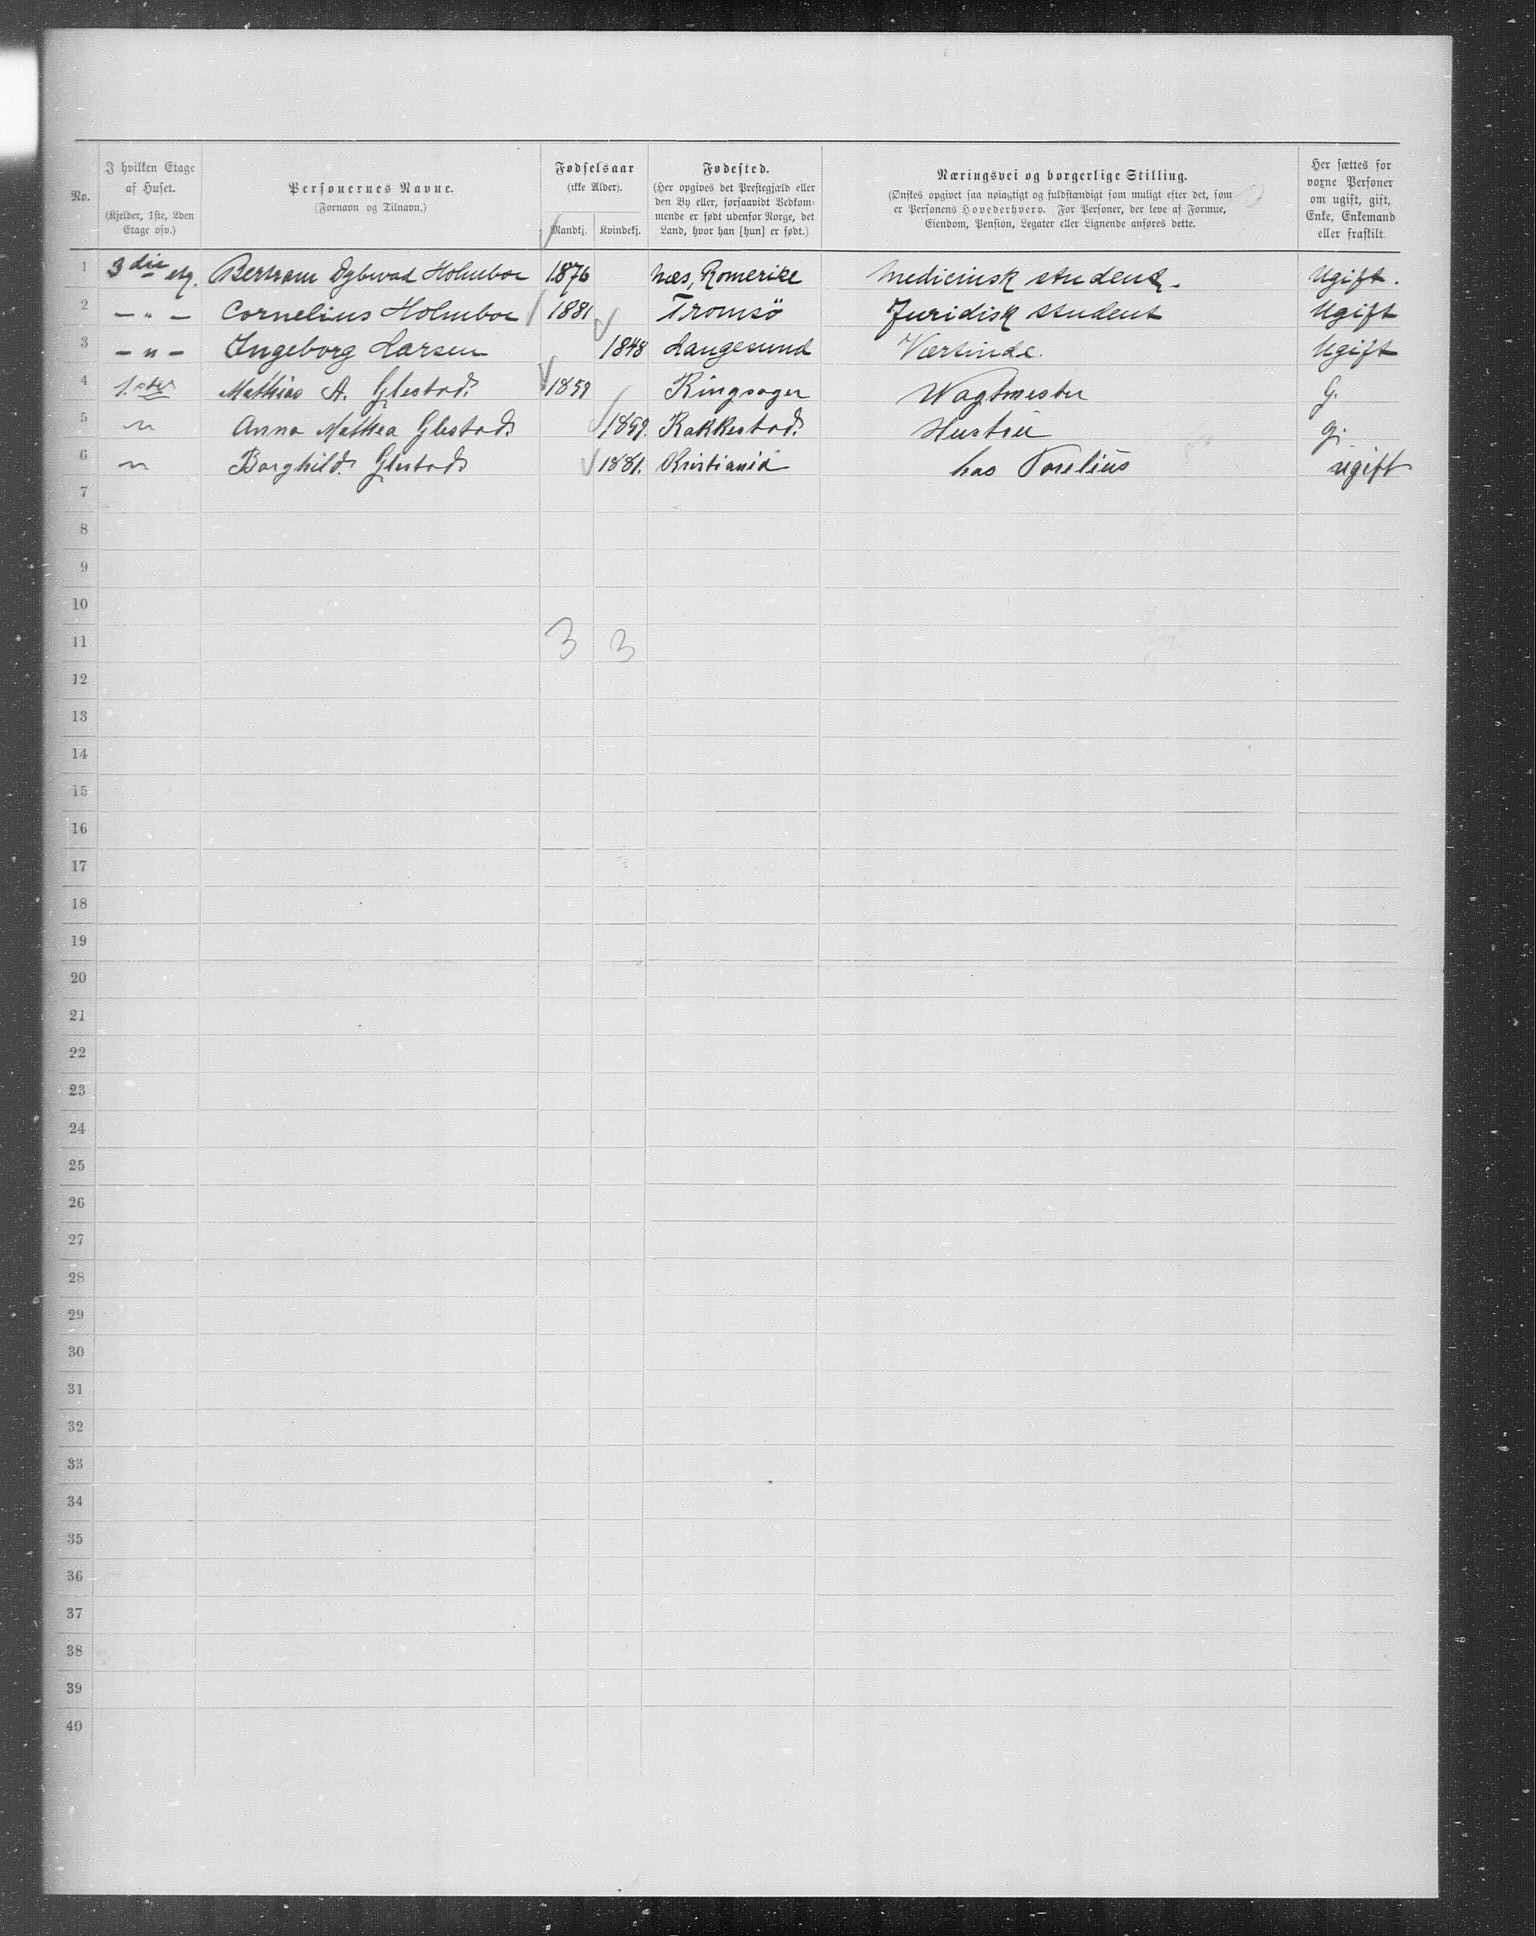 No.
I hvilken Etage
af Huset.
(Kjelder, 1ste, 2den
Etage osv.)
Personernes Navne.
(Fornavn og Tilnavn.)
Fødselsaar
(ikke Alder).
Mandkj. Kvindekj.
Fødested.
(Her opgives det Prestegjæld eller
den By eller, forsaavidt Vedkom-
mende er født udenfor Norge, det
Land, hvor han [hun] er født.)
Næringsvei og borgerlige Stilling.
(Ønskes opgivet saa nøiagtigt og fuldstændigt som muligt efter det, som
er Personens Hovederhverv. For Personer, der leve af Formue,
Eiendom, Pension, Legater eller Lignende anføres dette.
Her sættes for
voxne Personer
om ugift, gift,
Enke, Enkemand
eller fraskilt.
1 3die etg. Bertram Dybwad Holmboe 1876 Næs, Romerike Medicinsk student. Ugift.
2 – " – Cornelius Holmboe 1881 Tromsö Juridisk student Ugift
3 – " – Ingeborg Larsen 1848 Langesund Værtinde. Ugift
4 1.ste Mathias A. Glestad 1859 Ringsager Vagtmester G.
5 " Anna Mathea Glestad 1859. Rakkestad Hustru g.
6 " Borghild Glestad 1881. Kristiania hos ugift
7
8
9
10
11 3 3
12
13
14
15
16
17
18
19
20
21
22
23
24
25
26
27
28
29
30
31
32
33
34
35
36
37
38
39
40